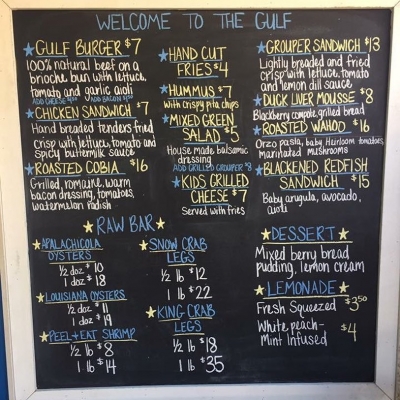 WELCOME TO THE GULF
GULF BURGER $7
100% natural beef on a
brioche bun with lettuce,
tomato and garlic aioli
ADD CHEESE $.50 ADD BACON $1.50
CHICKEN SANDWICH $7
Hand breaded tenders fried
crisp with lettuce, tomato and
spicy buttermilk sauce
ROASTED COBIA $16
Grilled romaine, warm
bacon dressing, tomatoes,
watermelon radish
HAND CUT
FRIES $4
HUMMUS $7
with crispy pita chips
MIXED GREEN
SALAD $5
House made balsamic
dressing
ADD GRILLED GROUPER $8
KIDS GRILLED
CHEESE $7
Served with fries
GROUPER SANDWICH $13
Lightly breaded and fried
crisp with lettuce, tomato
and lemon dill sauce
DUCK LIVER MOUSSE $8
Blackberry compote, grilled bread
ROASTED WAHOO $16
Orzo pasta, baby heirloom tomatoes,
marinated mushrooms
BLACKENED REDFISH
SANDWICH $15
Baby arugula, avocado,
aioli
RAW BAR
APALACHICOLA
OYSTERS
1/2 doz $10
1 doz $18
LOUISIANA OYSTERS
1/2 doz $11
1 doz $19
PEEL+EAT SHRIMP
1/2 lb $8
1 lb $14
SNOW CRAB
LEGS
1/2 lb $12
1 lb $22
KING CRAB
LEGS
1/2 lb $18
1 lb $35
DESSERT
Mixed berry bread
pudding, lemon cream
LEMONADE
Fresh Squeezed $3.50
White peach-
Mint Infused $4